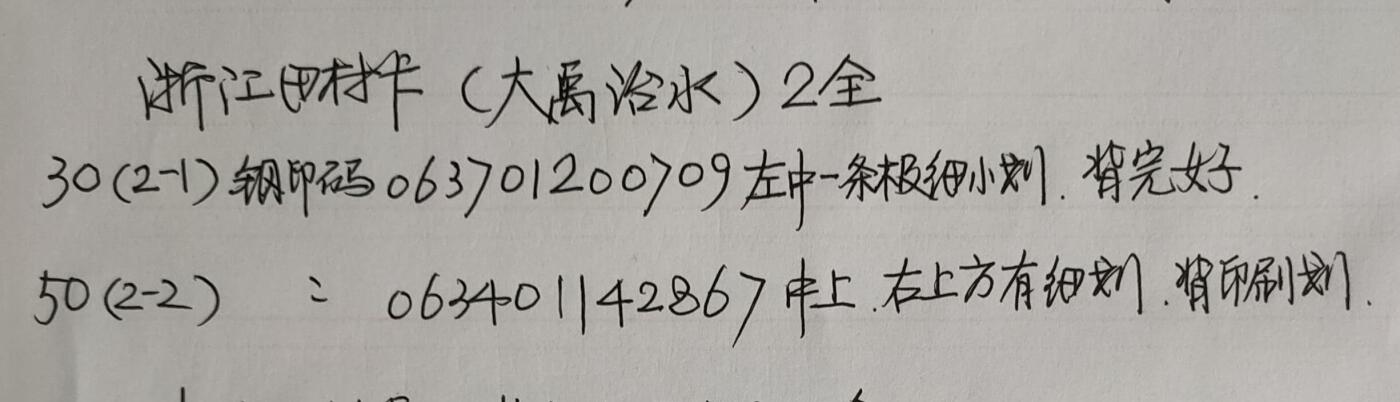 浙江田村卡（大禹治水）2全
30(2-1)钢印码063701200709左中一条极细小划.背完好.
50(2-2) 〃 063401142867中上.右上方有细划.背印刷划.